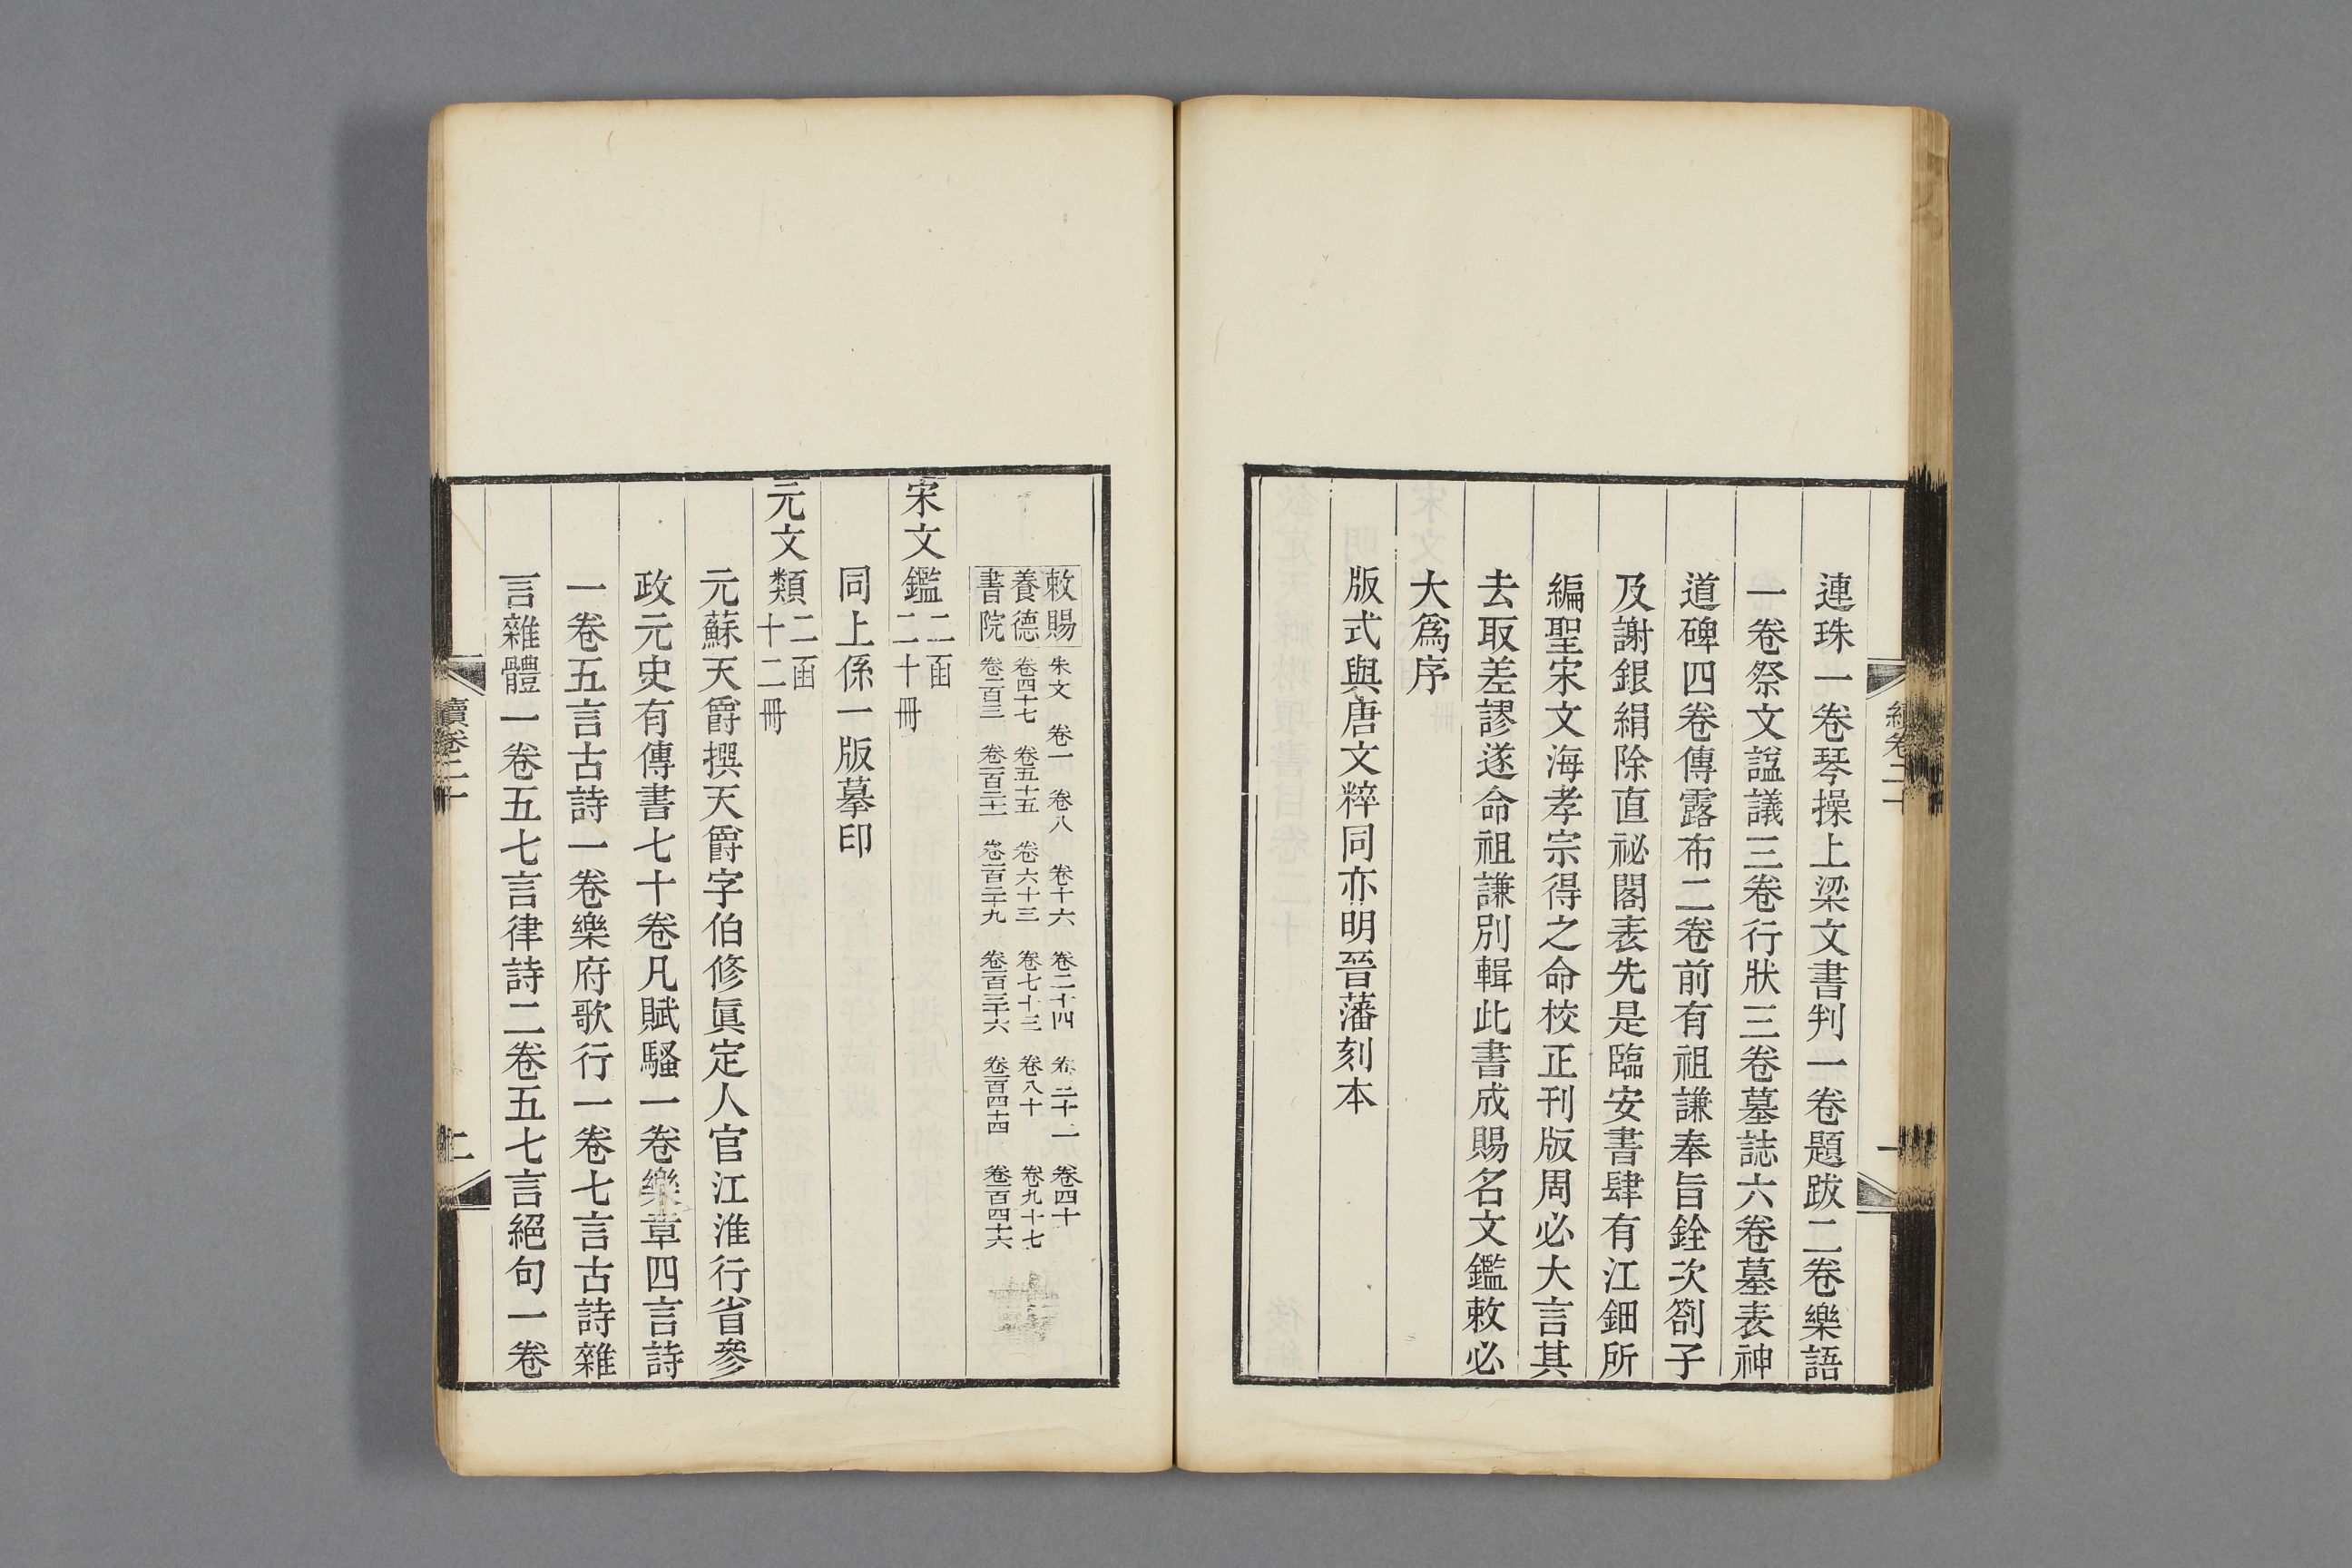 連珠一卷琴操上梁文書判一卷題跋二卷樂語
一卷祭文諡議三卷行狀三卷墓誌六卷墓表神
道碑四卷傳露布二卷前有祖謙奉旨銓次劄子
及謝銀絹除直祕閣表先是臨安書肆有江鈿所
編聖宋文海孝宗得之命校正刊版周必大言其
去取差謬遂命祖謙別輯此書成賜名文鑑敕必
大爲序
版式與唐文粹同亦明晉藩刻本
敕賜
養德
書院
朱文 卷一 卷八 卷十六 卷二十四 卷三十一 卷四十
卷四十七 卷五十五 卷六十三 卷七十三 卷八十 卷九十七
卷一百三 卷一百二十一 卷一百二十九 卷一百三十六 卷一百四十四 卷一百四十六
宋文鑑
二函
二十冊
同上係一版摹印
元文類
二函
十二冊
元蘇天爵撰天爵字伯修眞定人官江淮行省參
政元史有傳書七十卷凡賦騷一卷樂章四言詩
一卷五言古詩一卷樂府歌行一卷七言古詩雜
言雜體一卷五七言律詩二卷五七言絕句一卷
續卷二十
二